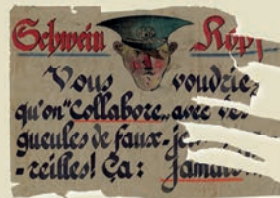 Schwein Kopf
Vous voudriez
qu'on "Collabore„ avec
gueules de faux-
-reilles! Ça: Jamais